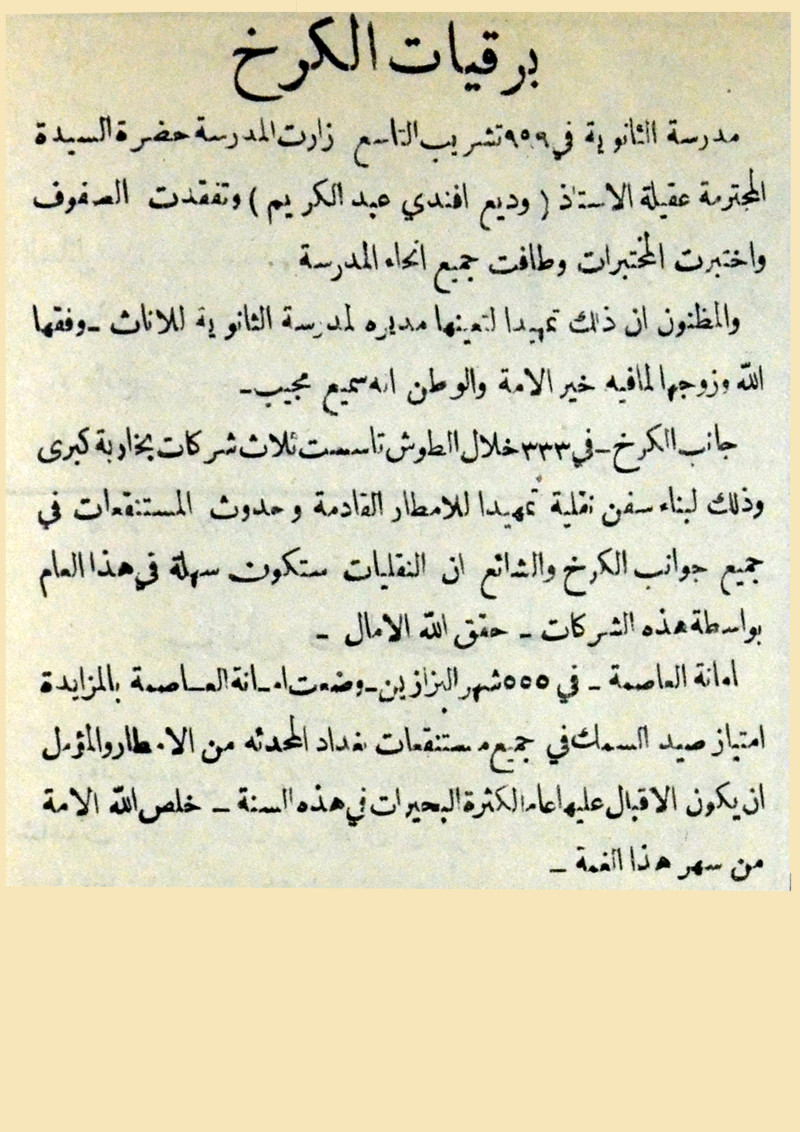 برقيات الكرخ
مدرسة الثانوية في ٩٥٩ تشريب التاسع زارت المدرسة حضرة السيدة
المحترمة عقيلة الاستاذ ( وديع افندي عبد الكريم ) وتفقدت الصفوف
واختبرت المختبرات وطافت جميع انحاء المدرسة
والمظنون ان ذلك تمهيدا لتعينها مديره لمدرسة الثانوية للاناث ـ وفقها
الله وزوجها لمافيه خير الامة والوطن انه سميع مجيب ـ
جانب الكرخ ـ في ٣٣٣ خلال الطوش تاسست ثلاث شركات بخارية كبرى
وذلك لبناء سفن نقلية تمهيدا للامطار القادمة وحدوث المستنقعات في
جميع جوانب الكرخ والشائع ان النقليات ستكون سهلة في هذا العام
بواسطة هذه الشركات ـ حقق الله الامال ـ
امانة العاصمة ـ في ٥٥٥ شهر البزازين ـ وضعت امانة العاصمة بالمزايدة
امتياز صيد السمك في جميع مستنقعات بغداد المحدثه من الامطار والمؤمل
ان يكون الاقبال عليها عاما لكثرة البحيرات في هذه السنة ـ خلص الله الامة
من سهر هذا الغمة ـ